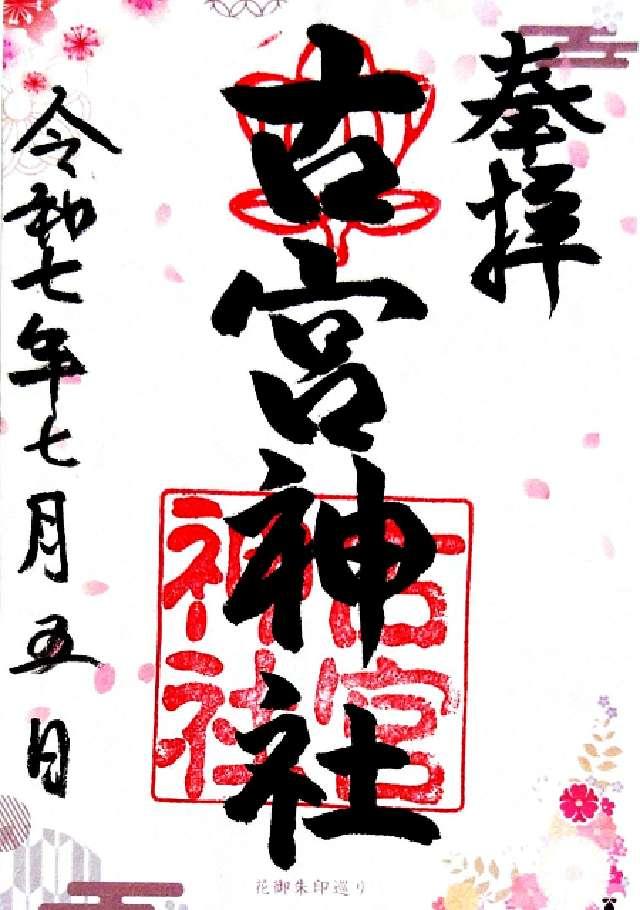 奉拝
古宮神社
古宮
神社
令和七年七月五日
花御朱印巡り